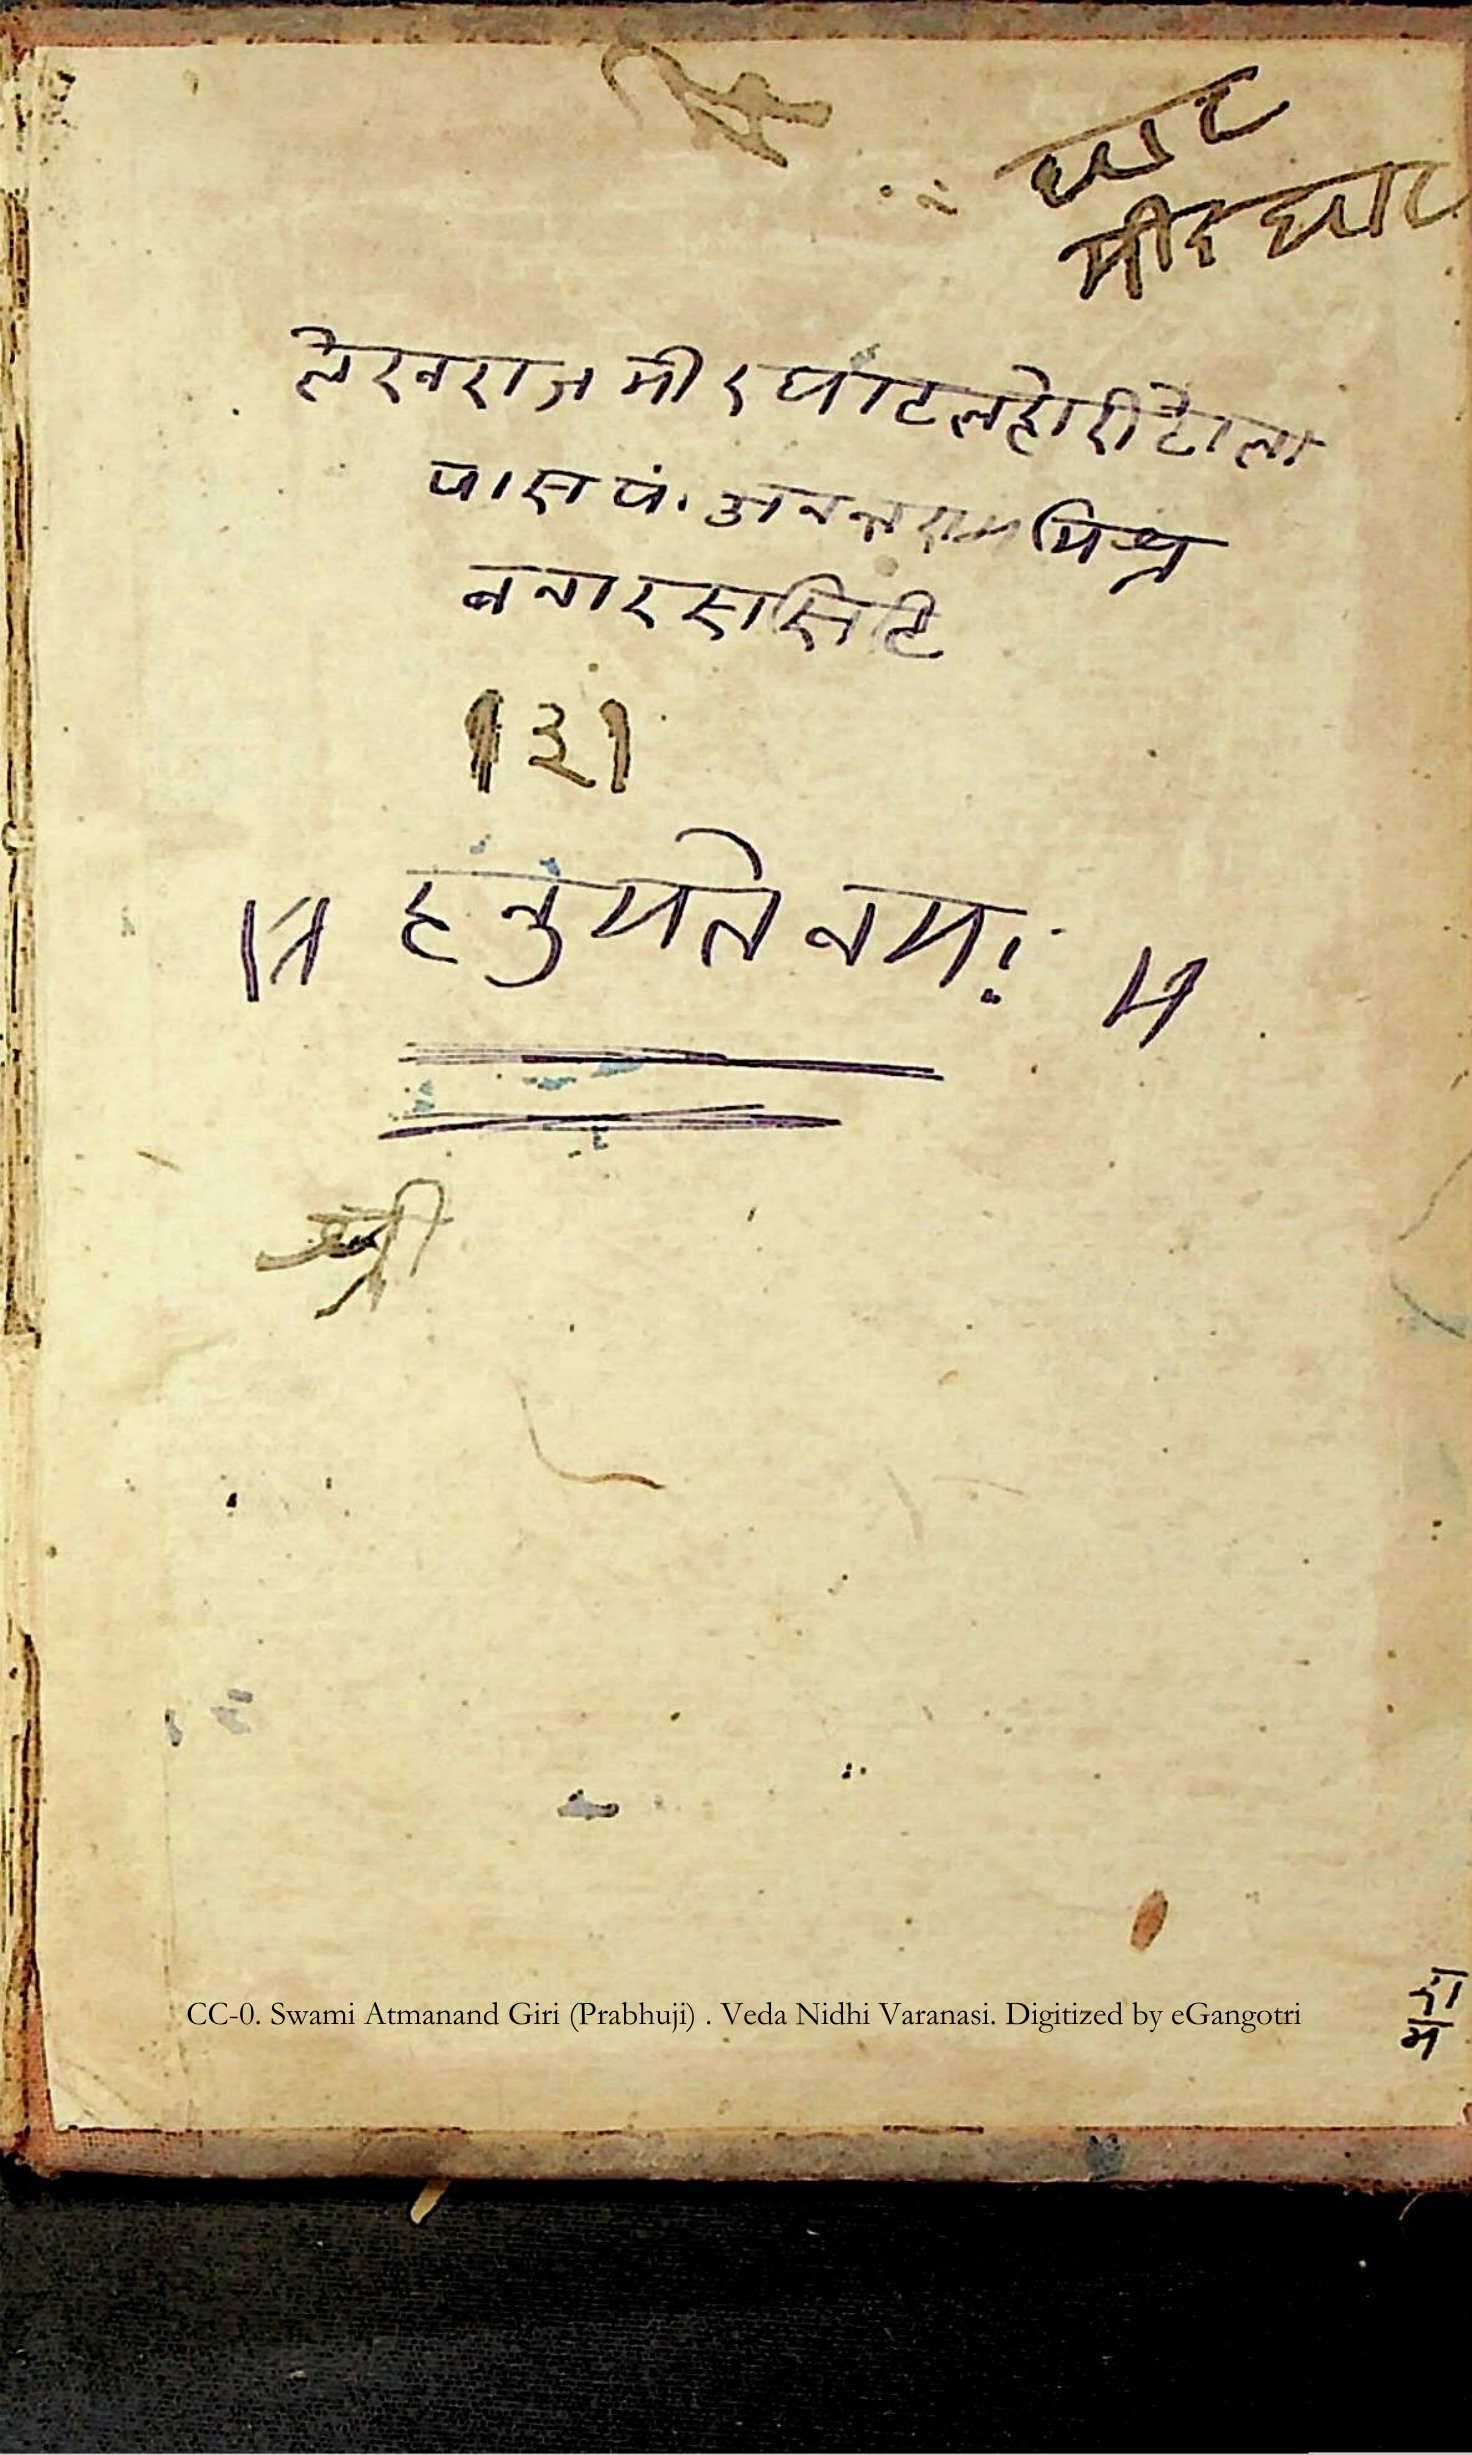 घाट
मीरघाट
लेखराज मीरघाट लहोरी टोला
पास पं. अनन्तराम मिश्र
बनारस सिटि
१३१
॥ हनुमते नमः ॥
श्री
CC-0. Swami Atmanand Giri (Prabhuji) . Veda Nidhi Varanasi. Digitized by eGangotri
रा
म